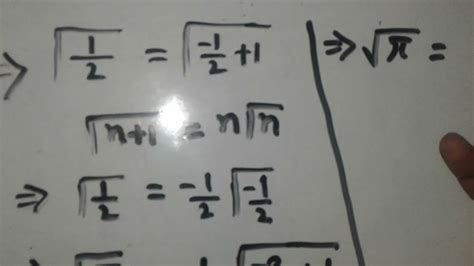 ⇒ Γ1/2 = Γ-1/2 + 1
Γn+1 = nΓn
⇒ Γ1/2 = -1/2 Γ-1/2
⇒ √π =